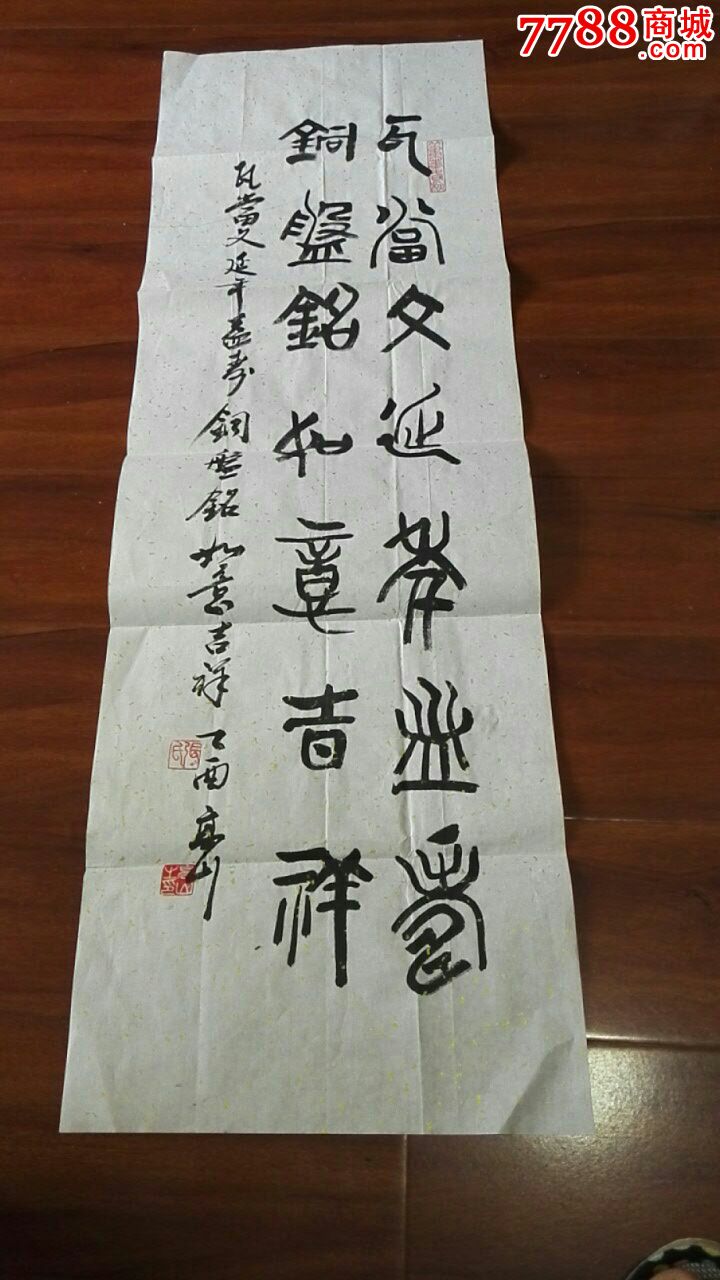 7788商城
.com
瓦當文延年益壽
銅盤銘如意吉祥
瓦當文延年益壽 銅盤銘 如意吉祥 丁酉 高山
張氏